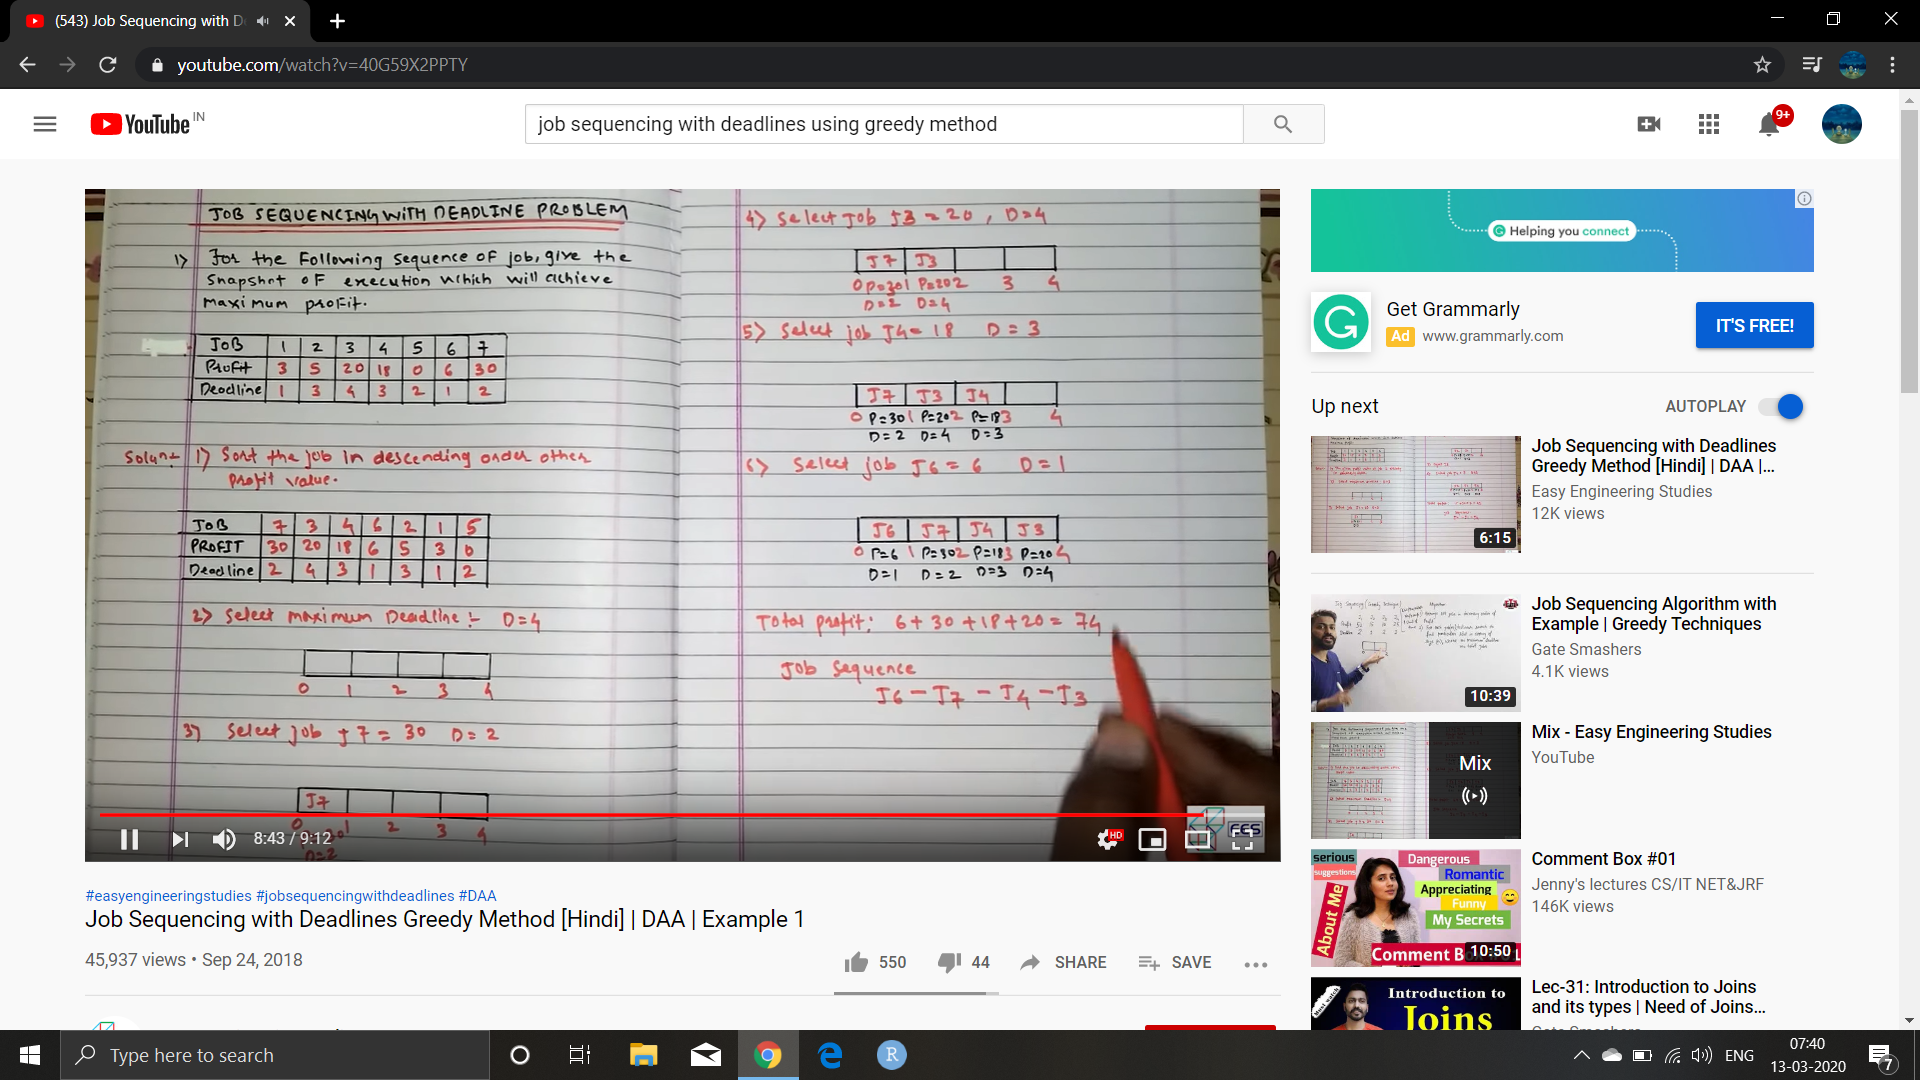 (543) Job Sequencing with D
youtube.com/watch?v=40G59X2PPTY
YouTube IN
job sequencing with deadlines using greedy method
9+
JOB SEQUENCING WITH DEADLINE PROBLEM
1) For the Following sequence of job, give the
snapshot of execution which will achieve
maximum profit.
JOB 1 2 3 4 5 6 7
Profit 3 5 20 18 0 6 30
Deadline 1 3 4 3 2 1 2
Soln:- 1) Sort the job in descending order other
profit value.
JOB 7 3 4 6 2 1 5
PROFIT 30 20 18 6 5 3 0
Deadline 2 4 3 1 3 1 2
2) Select maximum Deadline :- D=4
0 1 2 3 4
3) Select job J7 = 30 D=2
J7
0 1 2 3 4
D=2
4) Select Job J3 = 20, D=4
J7 J3
0 P=30 1 P=20 2 3 4
D=2 D=4
5) Select job J4= 18 D = 3
J7 J3 J4
0 P=30 1 P=20 2 P=18 3 4
D=2 D=4 D=3
6) Select job J6 = 6 D=1
J6 J7 J4 J3
0 P=6 1 P=30 2 P=18 3 P=20 4
D=1 D=2 D=3 D=4
Total profit: 6+30+18+20= 74
Job sequence
J6 - J7 - J4 - J3
8:43 / 9:12
HD
EES
#easyengineeringstudies #jobsequencingwithdeadlines #DAA
Job Sequencing with Deadlines Greedy Method [Hindi] | DAA | Example 1
45,937 views • Sep 24, 2018
550 44 SHARE SAVE
Helping you connect
Get Grammarly
Ad www.grammarly.com
IT'S FREE!
Up next
AUTOPLAY
6:15
Job Sequencing with Deadlines
Greedy Method [Hindi] | DAA |...
Easy Engineering Studies
12K views
10:39
Job Sequencing Algorithm with
Example | Greedy Techniques
Gate Smashers
4.1K views
Mix
Mix - Easy Engineering Studies
YouTube
serious
suggestions
Dangerous
Romantic
Appreciating
Funny
My Secrets
About Me
Comment B
10:50
Comment Box #01
Jenny's lectures CS/IT NET&JRF
146K views
Introduction to
Joins
Lec-31: Introduction to Joins
and its types | Need of Joins...
Gate Smashers
Type here to search
ENG
07:40
13-03-2020
7